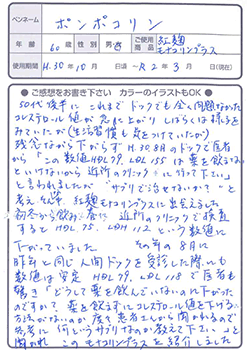 ペンネーム ポンポコリン
年齢 60歳 性別 男・女 ご使用商品 紅麹モナコリンプラス
使用期間 H.30年10月 日頃~R2年3月 日(現在)
●ご感想をお書き下さい カラーのイラストもOK●
50代後半に これまでドックでも全く問題なかった
コレステロール値が だんだん上がり しばらくは様子を
みていたが(生活習慣も気をつけていたが)
残念ながら下がらず H.30.8月のドックで医者
から「この数値HDL79、LDL155は薬を飲まな
いといけないから近所のクリニックに行って下さい」
と言われましたが “サプリで治せないか?”と
考え 紅麹モナコリンプラスに出会えました
初冬から飲み 近所のクリニックで検査
すると HDL75、LDL112という数値に
下がっていました。その年の8月に
昨年と同じ人間ドックを受診した際にも
数値は安定 HDL79、LDL118で医者も
驚き「どうして薬を飲んでいないのに下がった
のですか?薬を飲まずにコレステロール値を下げる
方法がないか度々患者さんから聞かれるので
参考に 何というサプリなのか教えて下さい」と
聞かれ このモナコリンプラスを紹介しました